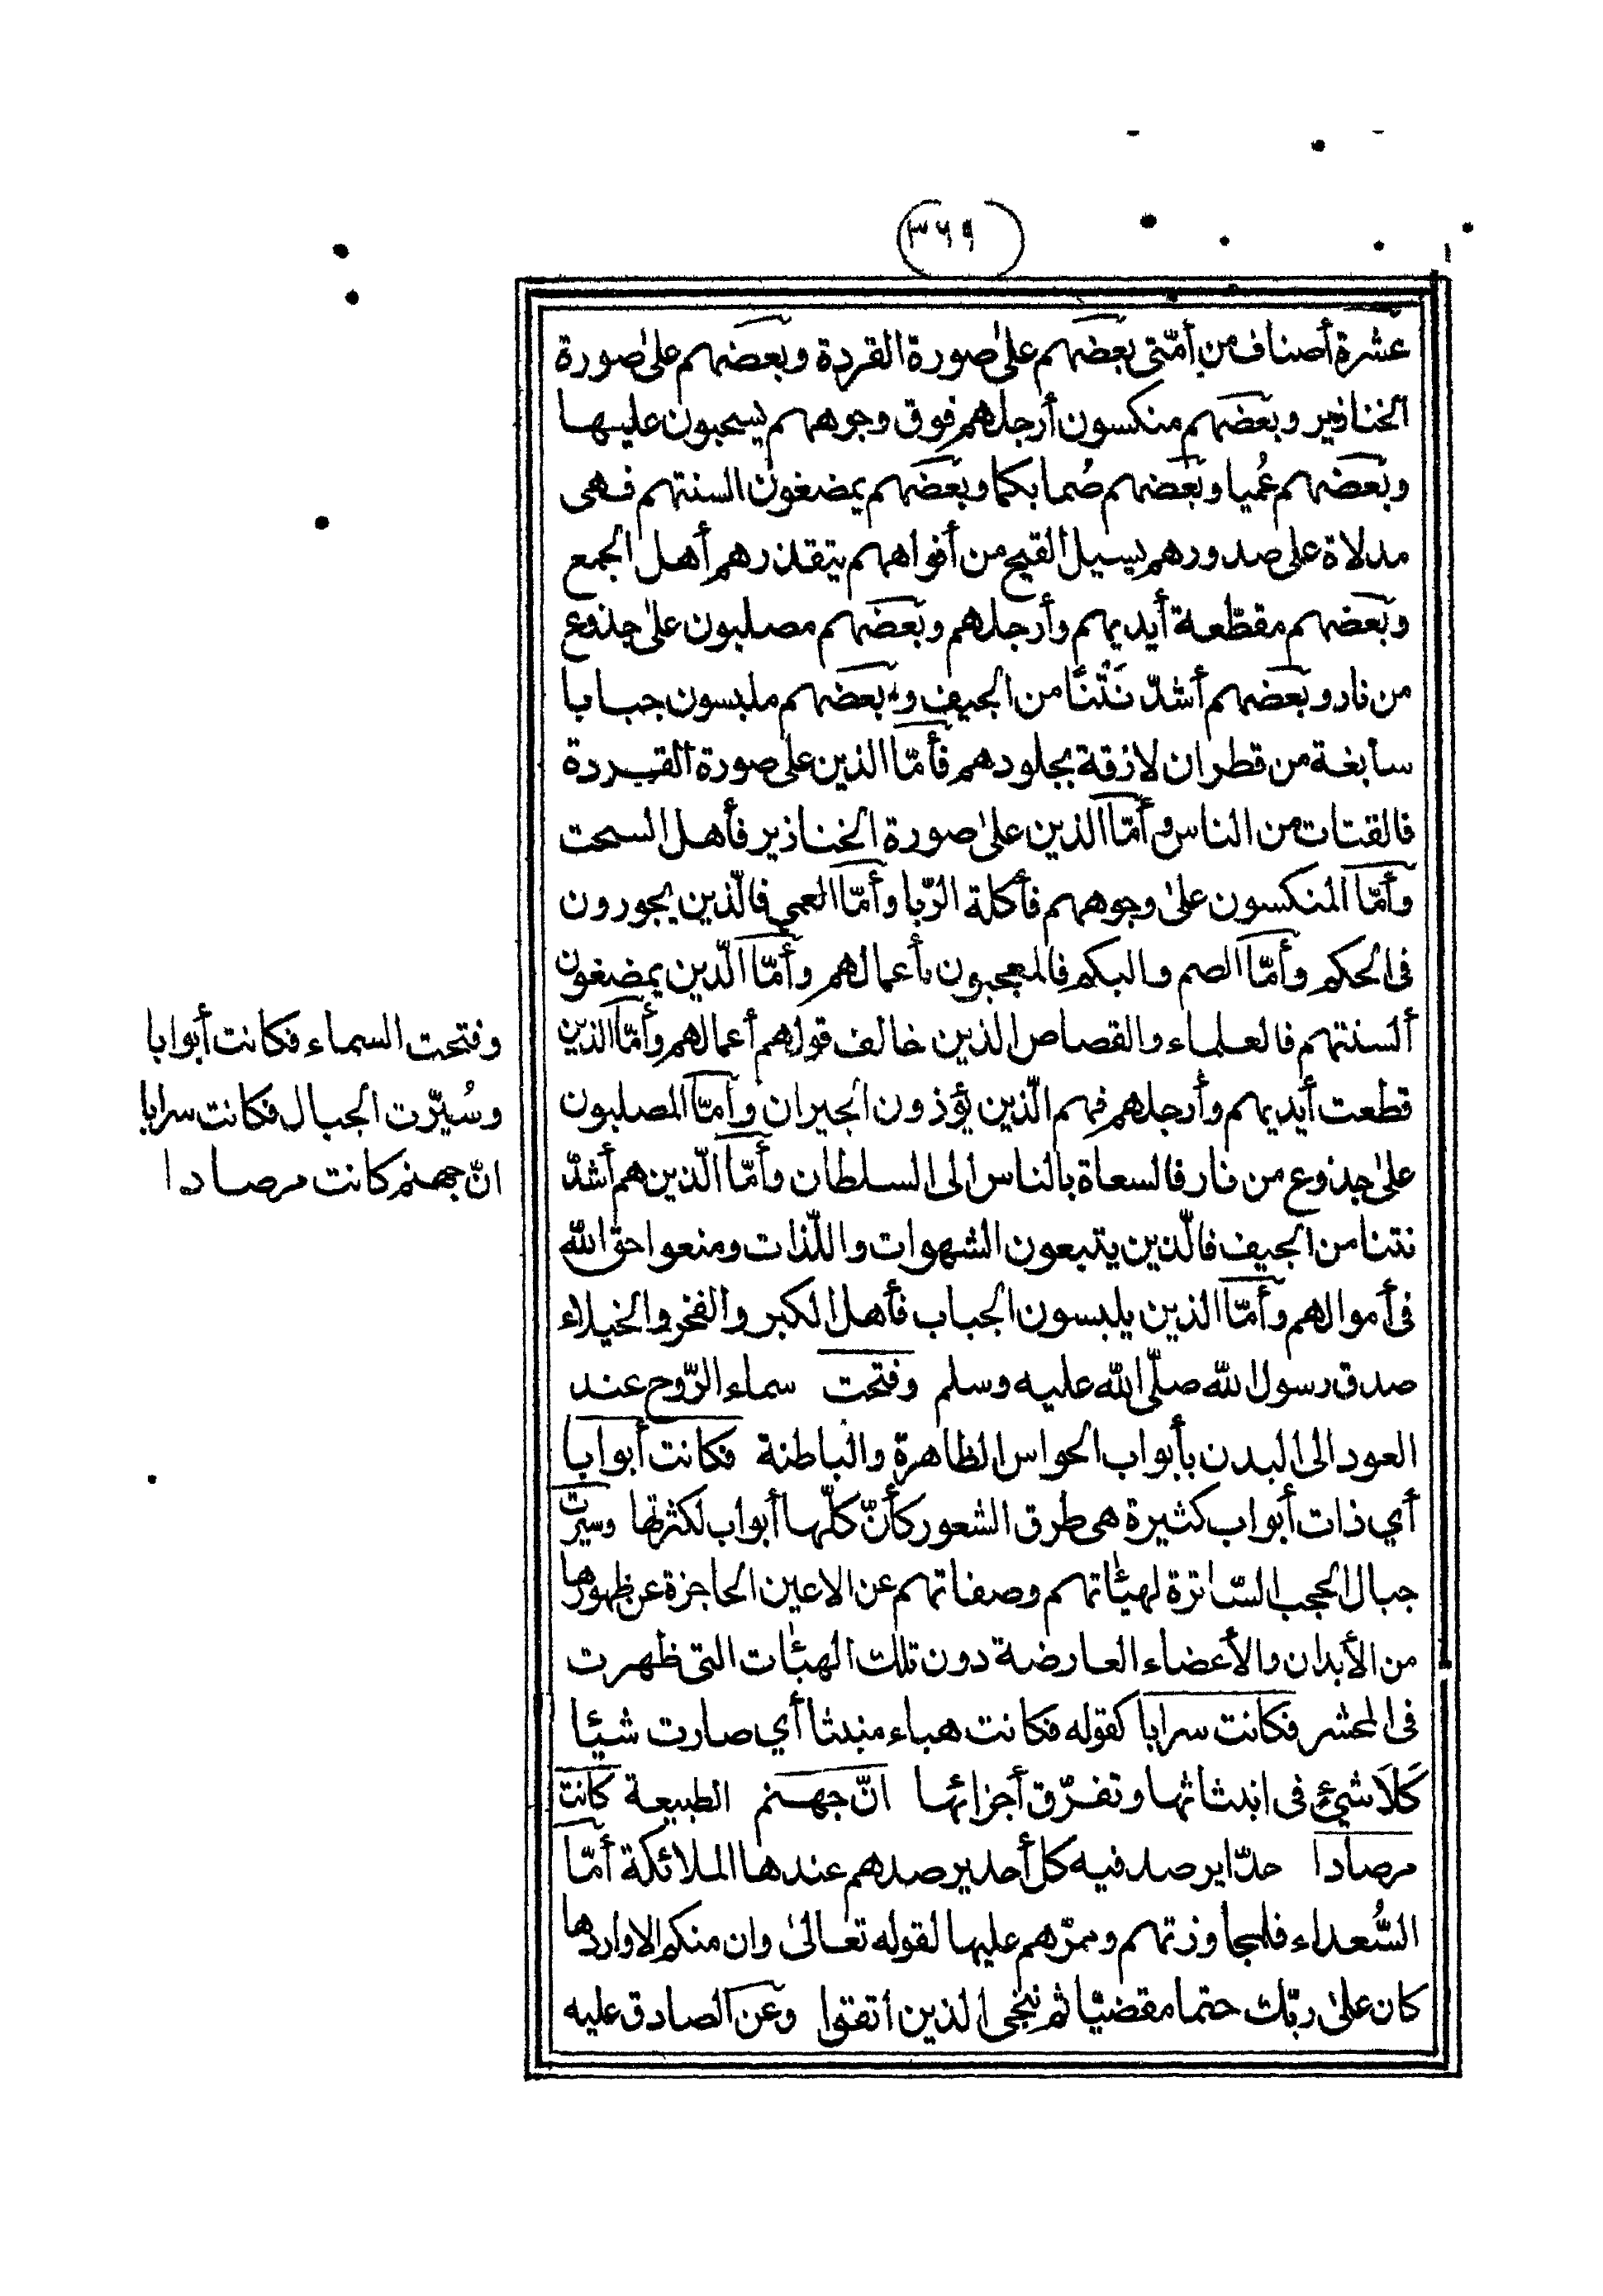 (٣٦٩)
عشرة أصناف من أمّتى بعضهم علىٰ صورة القردة وبعضهم علىٰ صورة
الخنازير وبعضهم منكسون أرجلهم فوق وجوههم يسحبون عليها
وبعضهم عُميا وبعضهم صُما بكما وبعضهم يمضغون السنتهم فهى
مدلاة على صدورهم يسيل القيح من أفواههم يتقذرهم أهل الجمع
وبعضهم مقطّعة أيديهم وأرجلهم وبعضهم مصلبون علىٰ جذوع
من نار وبعضهم أشدّ نَتْنًا من الجيف وبعضهم ملبسون جبابا
سابغة من قطران لازقة بجلودهم فأمّا الذين على صورة القردة
فالقتات من الناس وأمّا الذين علىٰ صورة الخنازير فأهل السحت
وأمّا المنكسون علىٰ وجوههم فأكلة الرّبا وأمّا العمي فالّذين يجورون
فى الحكم وأمّا الصم والبكم فالمعجبون بأعمالهم وأمّا الّذين يمضغون
ألسنتهم فالعلماء والقصاص الذين خالف قولهم أعمالهم وأمّا الذين
قطعت أيديهم وأرجلهم فهم الّذين يؤذون الجيران وأمّا المصلبون
علىٰ جذوع من نار فالسعاة بالناس الى السلطان وأمّا الّذين هم أشدّ
نتنا من الجيف فالّذين يتبعون الشهوات واللّذات ومنعوا حق الله
فى أموالهم وأمّا الذين يلبسون الجباب فأهل الكبر والفخر والخيلاء
صدق رسول الله صلّى الله عليه وسلم وفتحت سماء الرّوح عند
العود الى البدن بأبواب الحواس الظاهرة والباطنة فكانت أبوابا
أي ذات أبواب كثيرة هى طرق الشعور كأنّ كلّها أبواب لكثرتها وسيرت
جبال الحجب السّاترة لهيئاتهم وصفاتهم عن الاعين الحاجزة عن ظهورها
من الأبدان والأعضاء العارضة دون تلك الهيئات التى ظهرت
فى المحشر فكانت سرابا كقوله فكانت هباء منبثا أي صارت شيئا
كَلَا شيئٍ فى انبثاثها وتفرّق أجزائها انّ جهنم الطبيعة كانت
مرصادا حدّا يرصد فيه كل أحد يرصدهم عندها الملائكة أمّا
السُّعداء فلمجاوزتهم وممرّهم عليها لقوله تعالىٰ وان منكم الا واردها
كان علىٰ ربّك حتما مقضيّا ثم ننجى الذين اتقوا وعن الصادق عليه
وفتحت السماء فكانت أبوابا
وسُيّرت الجبال فكانت سرابا
انّ جهنم كانت مرصادا